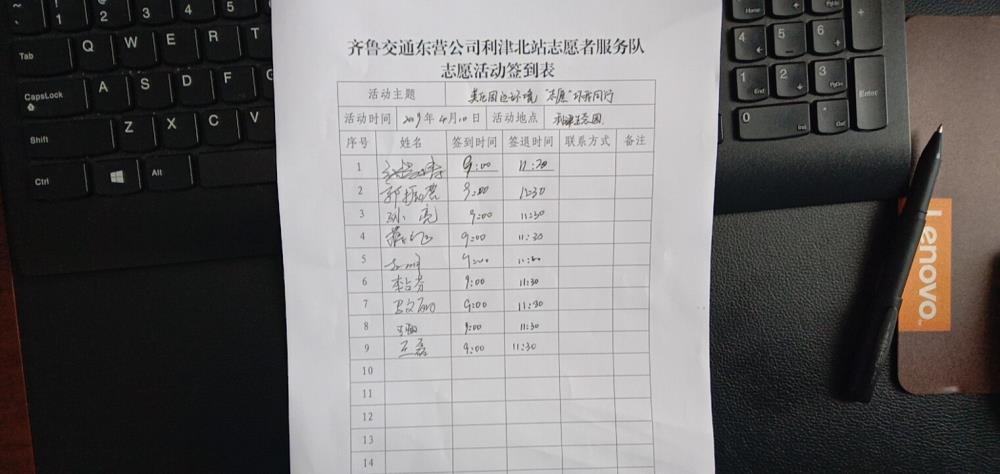 齐鲁交通东营公司利津北站志愿者服务队
志愿活动签到表
活动主题 美化园区环境 "志愿"环保同行
活动时间 2019年4月10日 活动地点
序号 姓名 签到时间 签退时间 联系方式 备注
1 9:00 11:30
2 郭振营 9:00 11:30
3 孙亮 9:00 11:30
4 9:00 11:30
5 9:00 11:30
6 李占芳 9:00 11:30
7 9:00 11:30
8 9:00 11:30
9 王磊 9:00 11:30
10
11
12
13
14
Tab Q W E R T
CapsLock A S D F G
Shift Z X C V
Ctrl Alt
7 8 9
4 5 6
1 2 3 Enter
End PgDn
0 Ins . Del
Lenovo